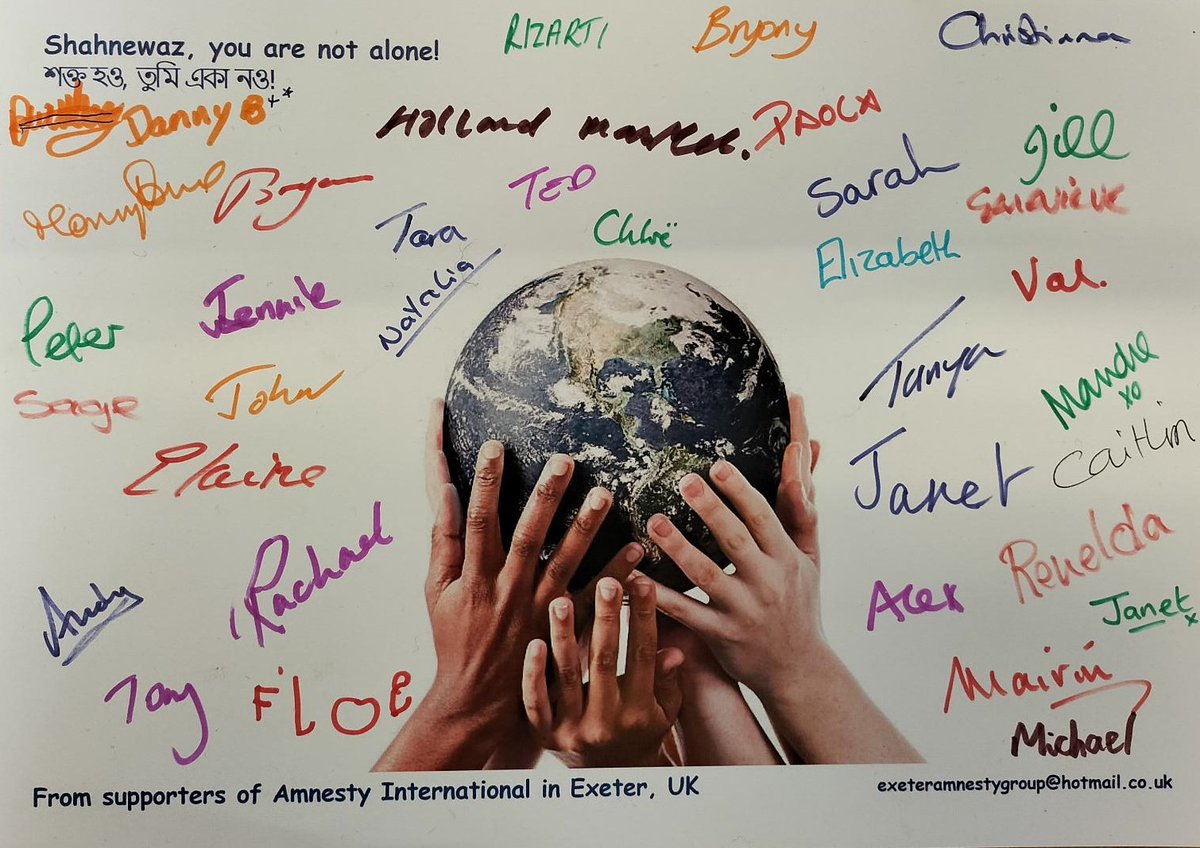 Shahnewaz, you are not alone!
শক্ত হও, তুমি একা নও!
RIZARTI
Bryony
Christinna
Danny B
Holland
PAOLA
Sarah
Jill
TED
Bryan
Genevieve
Tara
Chloë
Elizabeth
Val.
Natalia
Jennie
Peter
Tanya
Mandie
xo
Sage
John
Caitlin
Elaine
Janet
Rachael
Renelda
Andy
Alex
Janet x
Tony
FLOE
Mairín
Michael
From supporters of Amnesty International in Exeter, UK
exeteramnestygroup@hotmail.co.uk